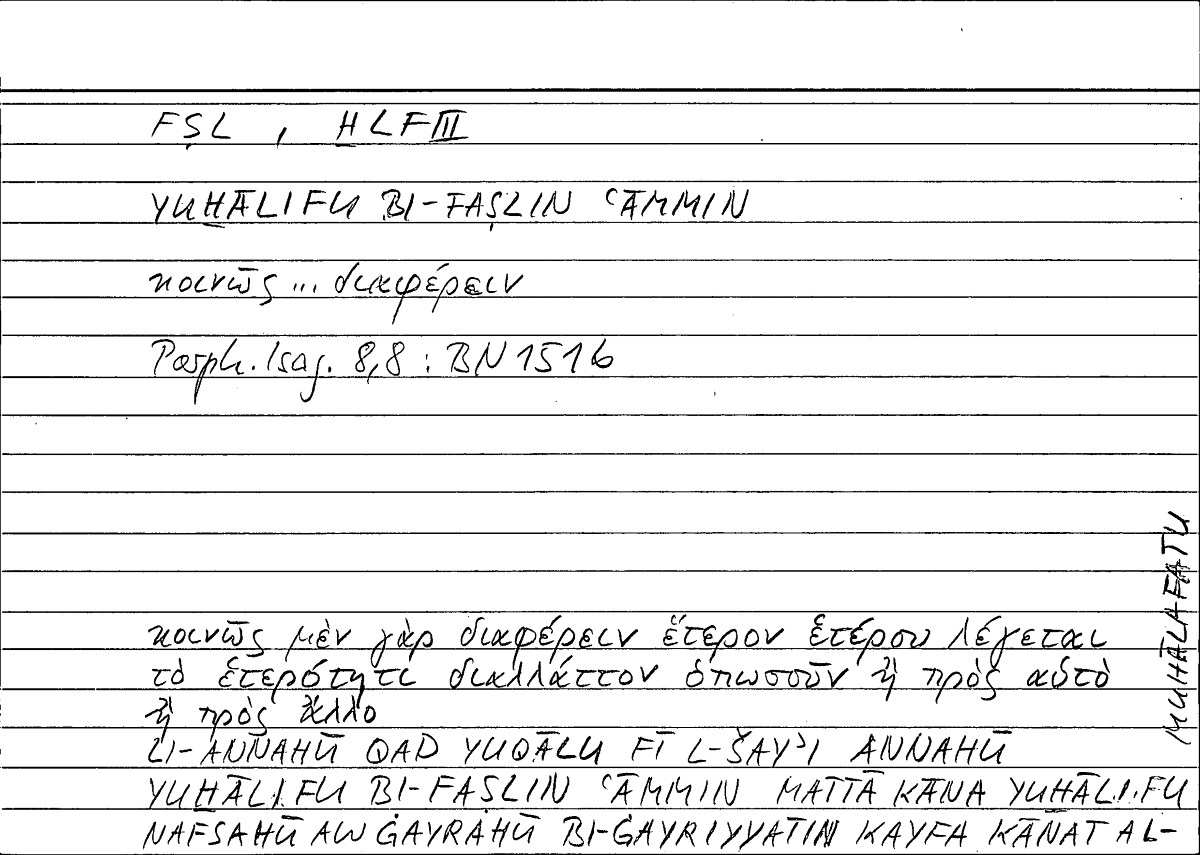 FṢL , ḪLF III
YUḪĀLIFU BI-FAṢLIN ʿĀMMIN
κοινῶς ... διαφέρειν
Porph. Isag. 8,8 : BN 151b
κοινῶς μὲν γὰρ διαφέρειν ἕτερον ἑτέρου λέγεται
τὸ ἑτερότητι διαλλάττον ὁπωσοῦν ἢ πρὸς αὑτὸ
ἢ πρὸς ἄλλο
LI-ANNAHŪ QAD YUQĀLU FĪ L-ŠAYʾI ANNAHŪ
YUḪĀLIFU BI-FAṢLIN ʿĀMMIN MATTĀ KĀNA YUḪĀLIFU
NAFSAHŪ AW ĠAYRAHŪ BI-ĠAYRIYYATIN KAYFA KĀNAT AL-
MUḪĀLAFATU